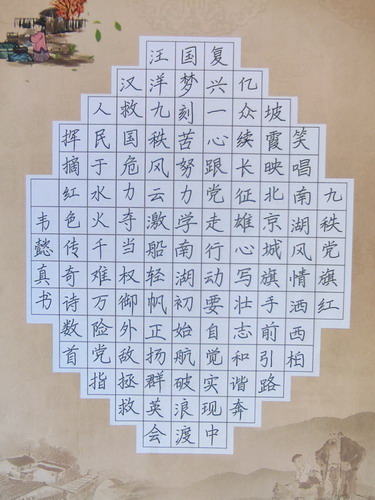 九秩党旗红
笑唱南湖风情洒西柏
坡霞映北京城旗手前引路
亿众续长征雄心写壮志和谐奔
复兴一心跟党走行动要自觉实现中
国梦刻苦努力学南湖初始航破浪渡
汪洋九秩风云激船轻帆正扬群英会
汉救国危力夺当权御外敌拯救
人民于水火千难万险党指
挥摘红色传奇诗数首
韦懿真书